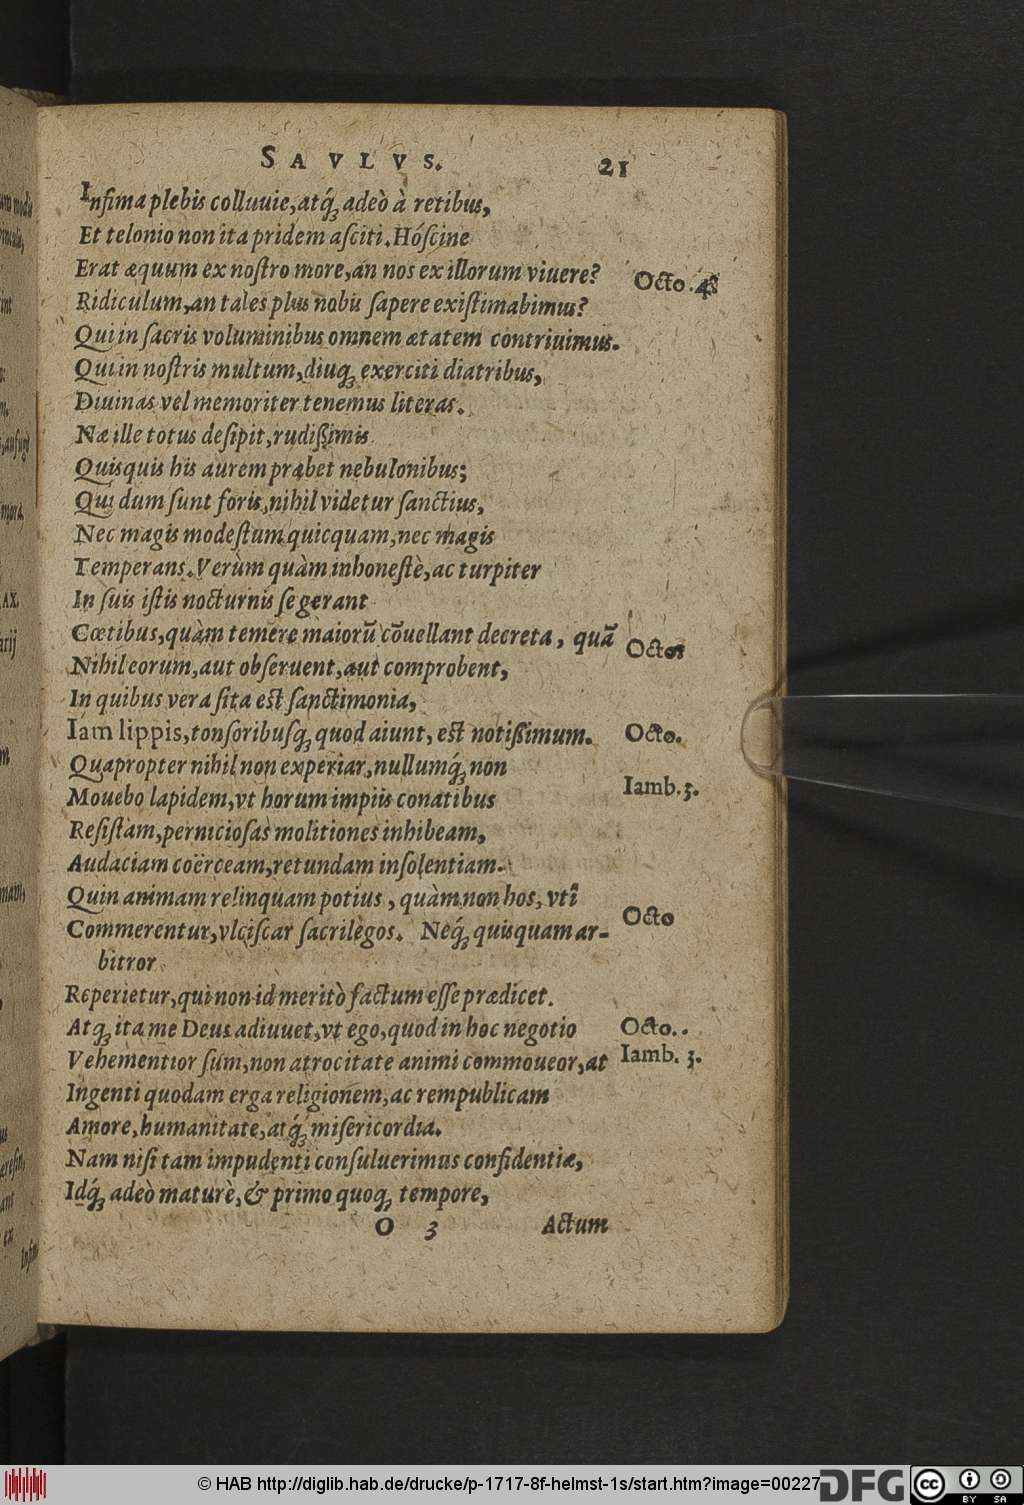 SAVLVS. 21
Infima plebis colluuie, atq́; adeò à retibus,
Et telonio non ita pridem aſciti. Hóſcine
Erat æquum ex noſtro more, an nos ex illorum viuere? Octo. 48
Ridiculum, an tales plus nobis ſapere exiſtimabimus?
Qui in ſacris voluminibus omnem ætatem contriuimus.
Qui in noſtris multum, diuq; exerciti diatribus,
Diuinas vel memoriter tenemus literas.
Næ ille totus deſipit, rudiſsimis
Quisquis his aurem præbet nebulonibus;
Qui dum ſunt foris, nihil videtur ſanctius,
Nec magis modeſtum quicquam, nec magis
Temperans. Verùm quàm inhoneſtè, ac turpiter
In ſuis iſtis nocturnis ſe gerant
Cœtibus, quàm temere maiorũ cõuellant decreta, quã Octo
Nihil eorum, aut obſeruent, aut comprobent,
In quibus vera ſita eſt ſanctimonia,
Iam lippis, tonſoribuſq; quod aiunt, eſt notiſsimum. Octo.
Quapropter nihil non experiar, nullumq́; non Iamb. 3.
Mouebo lapidem, vt horum impiis conatibus
Reſiſtam, pernicioſas molitiones inhibeam,
Audaciam coërceam, retundam inſolentiam.
Quin animam relinquam potius, quàm non hos, vti Octo
Commerentur, vlciſcar ſacrilegos. Neq́; quisquam ar-
bitror
Reperietur, qui non id meritò factum eſſe prædicet.
Atq; ita me Deus adiuuet, vt ego, quod in hoc negotio Octo..
Vehementior ſum, non atrocitate animi commoueor, at Iamb. 3.
Ingenti quodam erga religionem, ac rempublicam
Amore, humanitate, atq́; miſericordia.
Nam niſi tam impudenti conſuluerimus confidentiæ,
Idq́; adeò maturè, & primo quoq; tempore,
O 3 Actum
© HAB http://diglib.hab.de/drucke/p-1717-8f-helmst-1s/start.htm?image=00227
DFG
cc BY SA